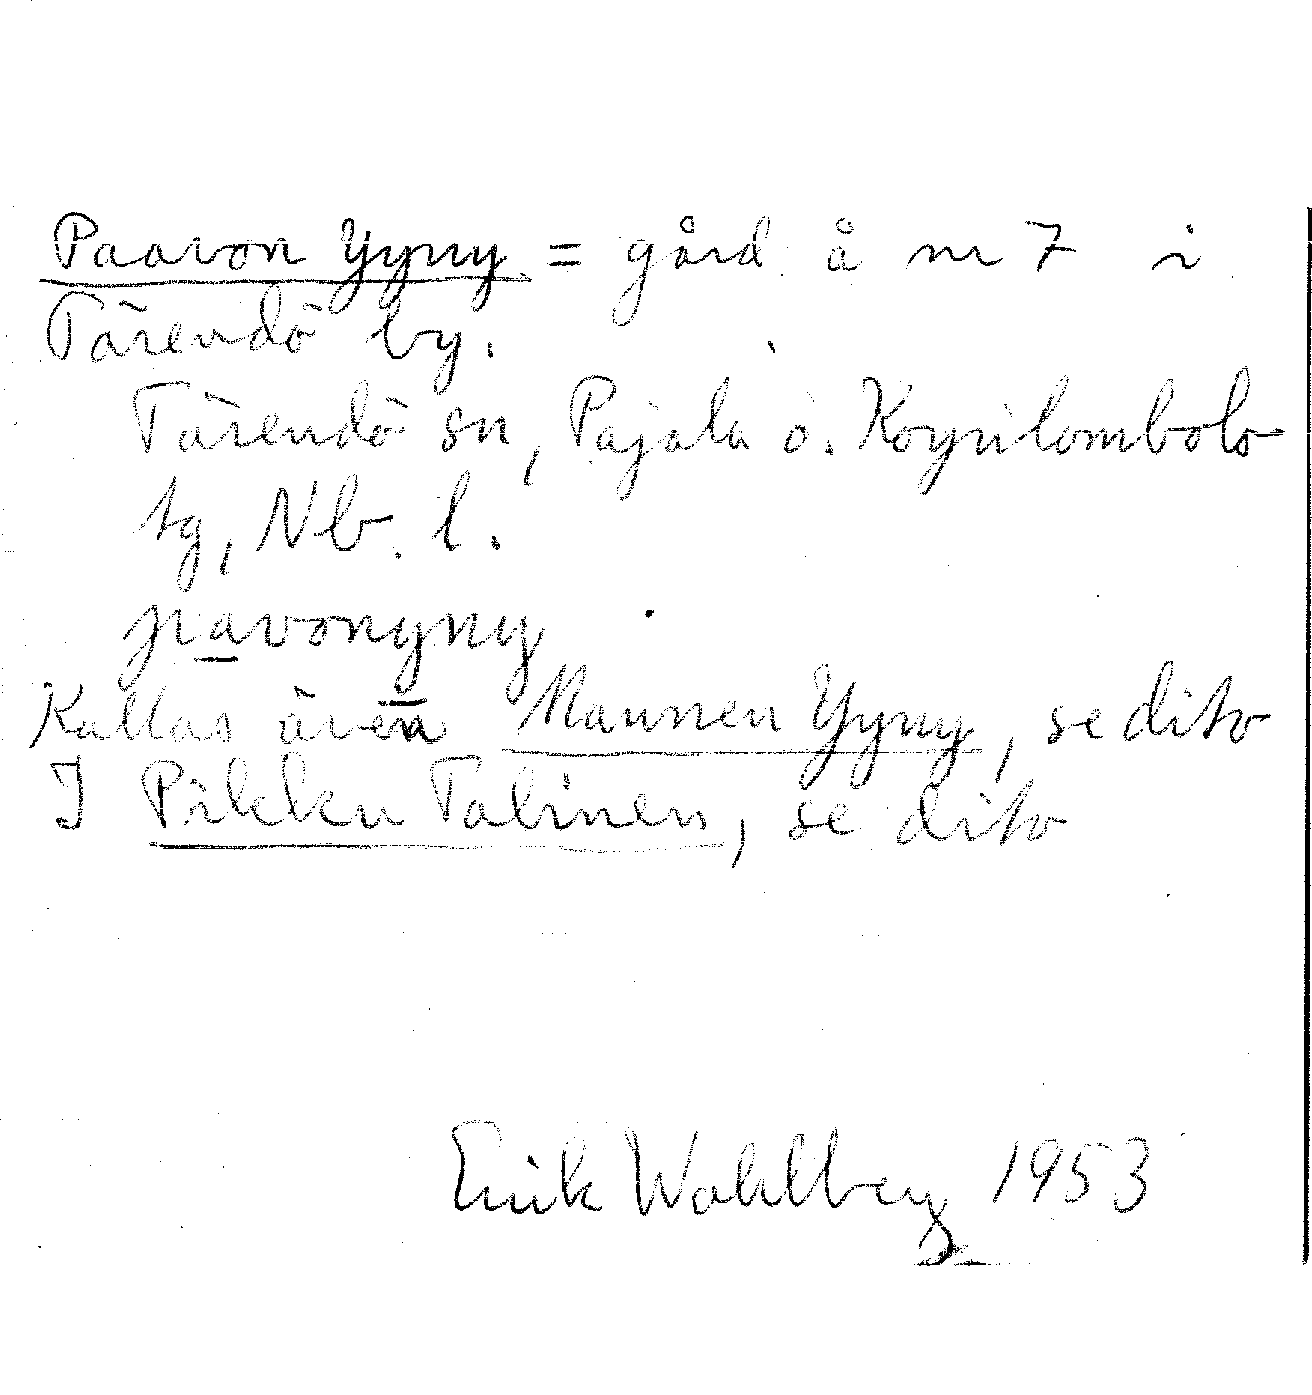 Paavon Yyny = gård å nr 7 i
Tärendö by.
Tärendö sn, Pajala o. Korpilombolo
tg, Nb. l.
pavonyny
Kallas även Maunen Yyny, se dito
I Pikku Talinen, se dito
Erik Wahlberg 1953